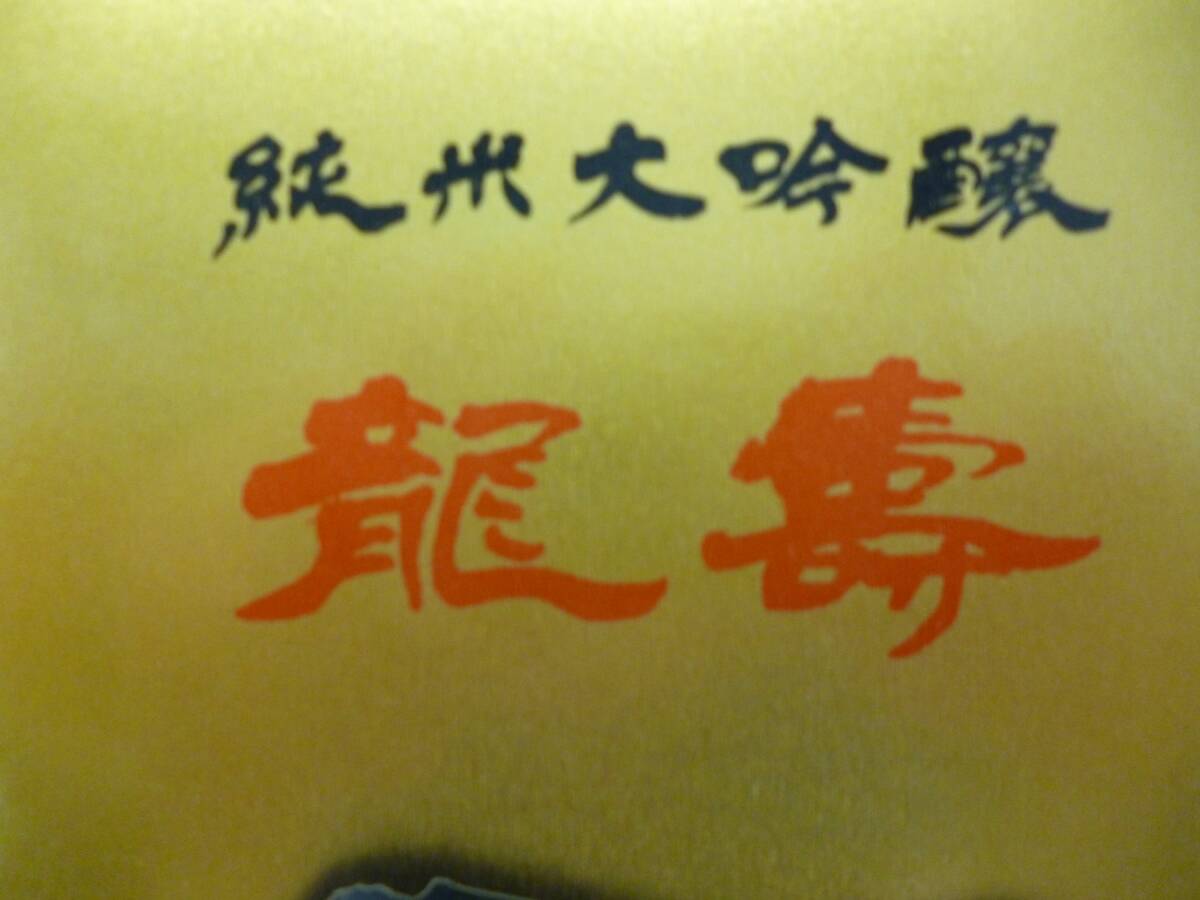 純米大吟醸
龍壽